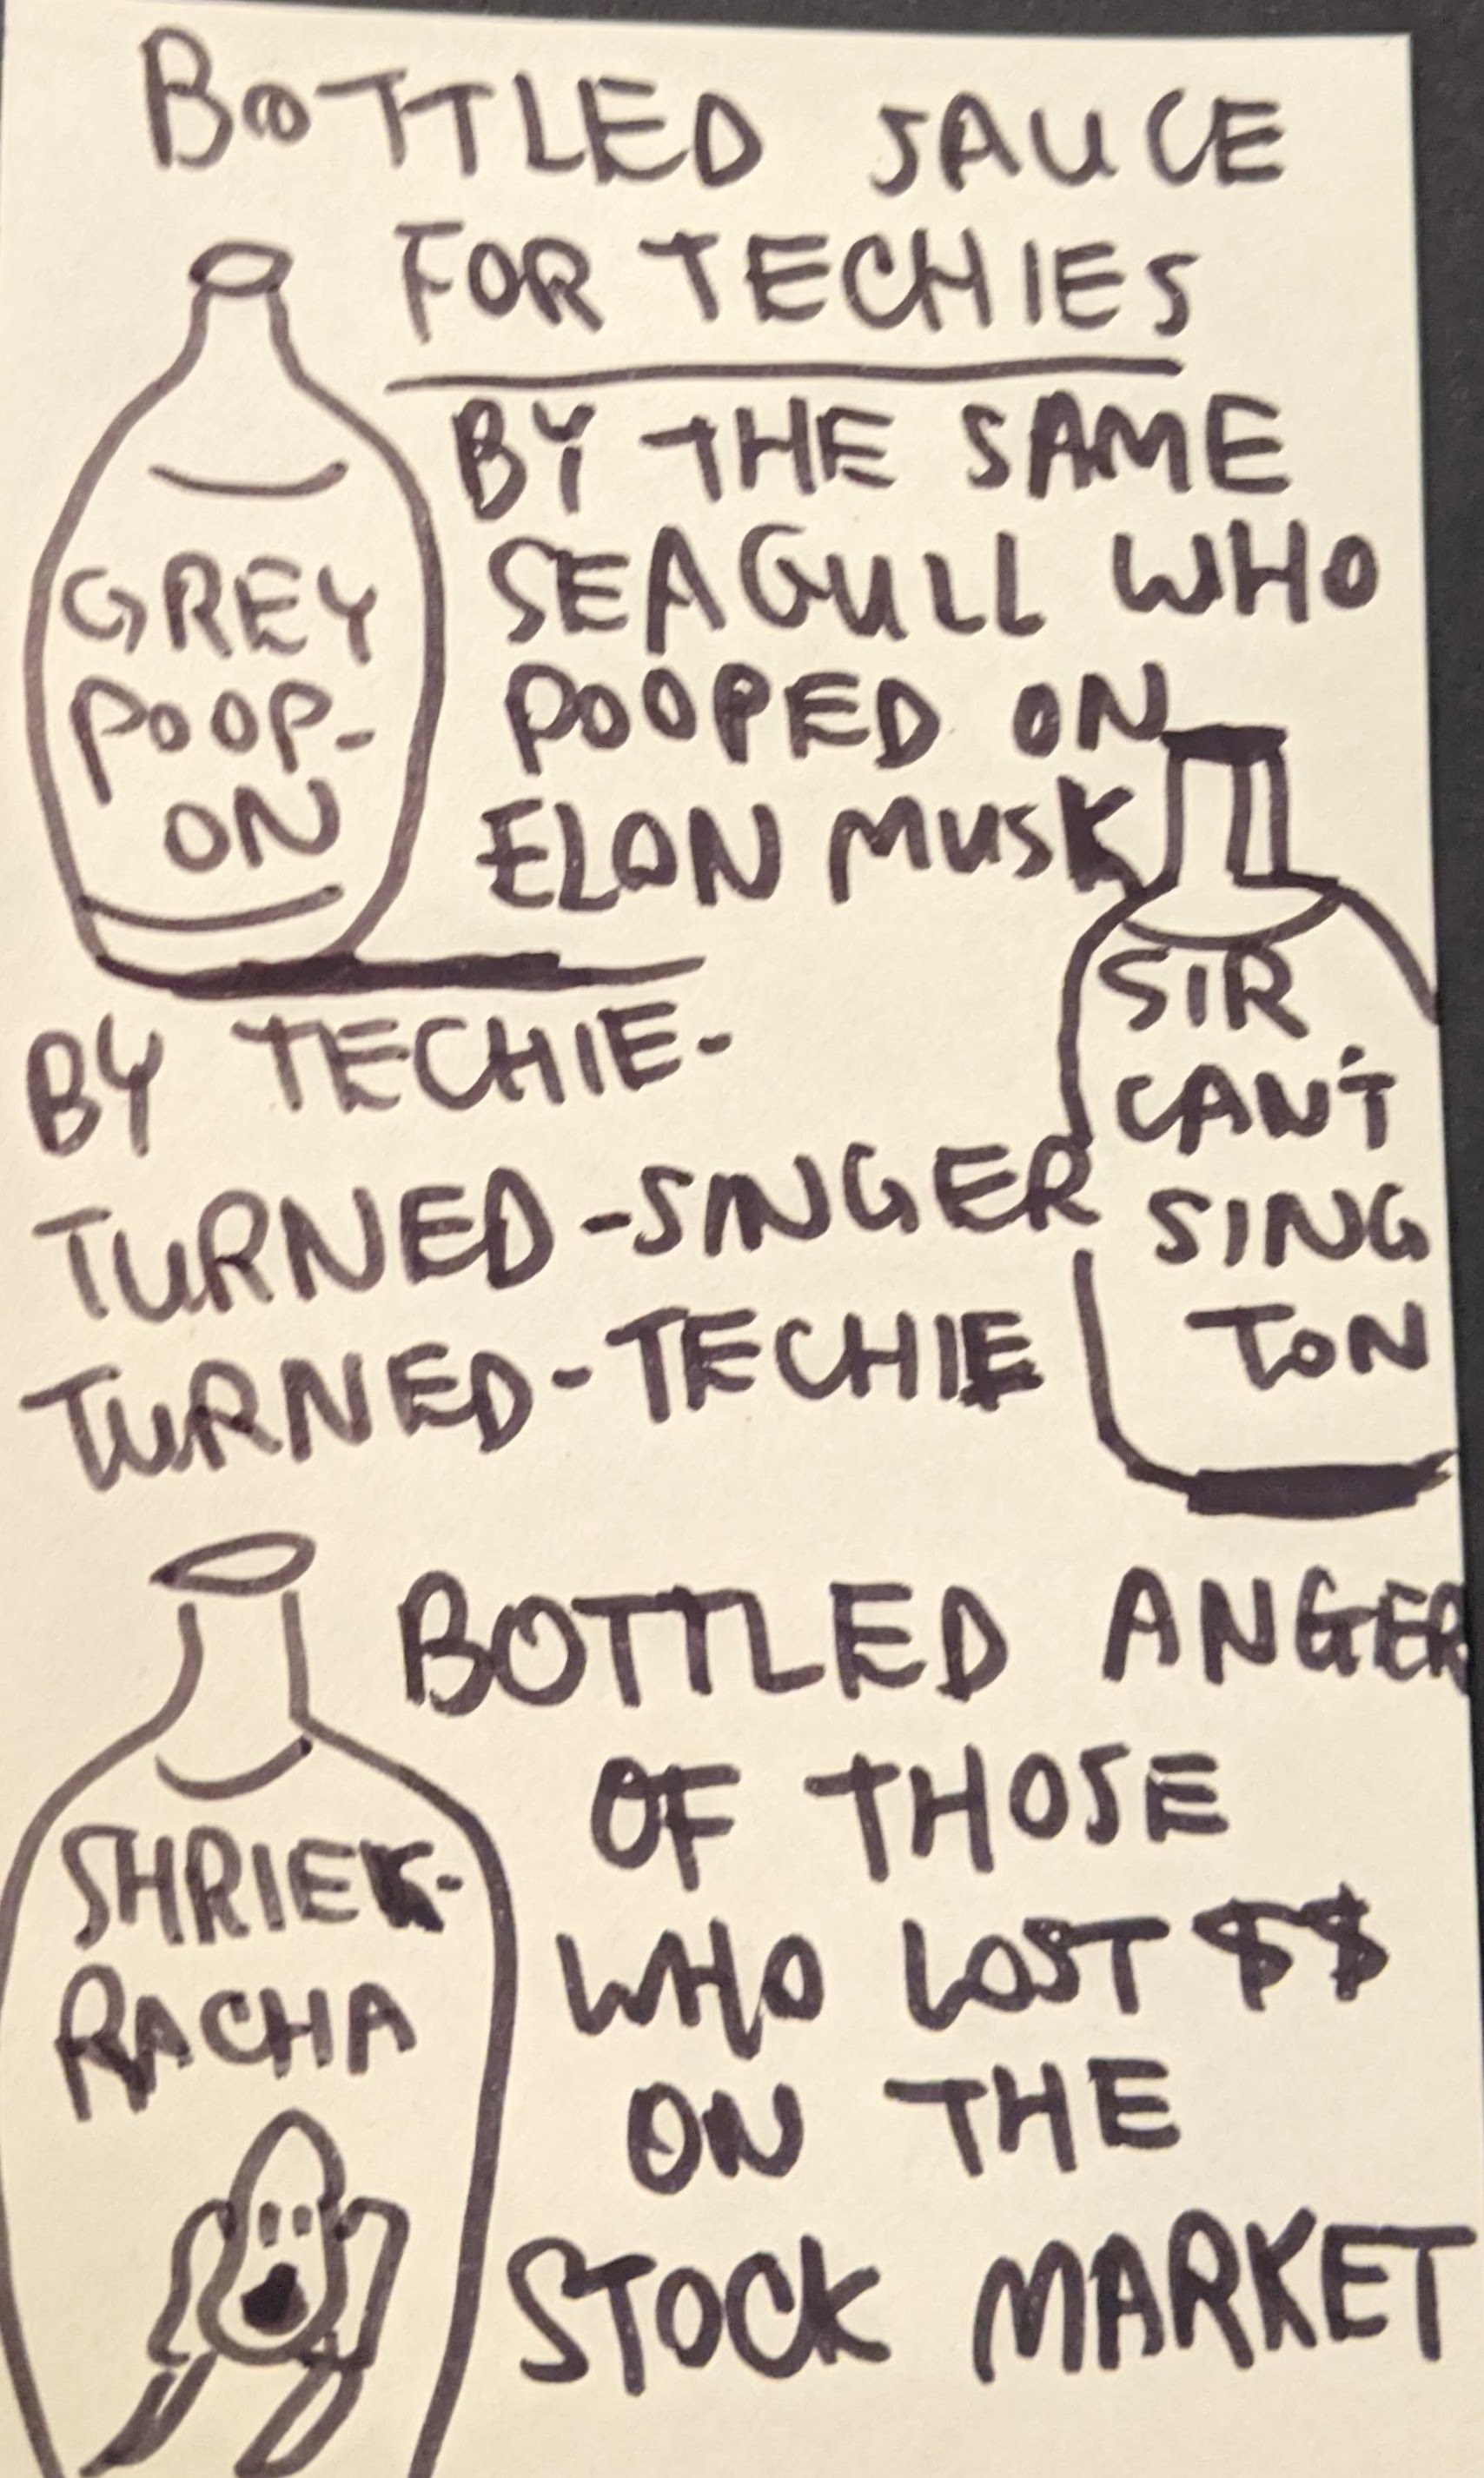 BOTTLED SAUCE
FOR TECHIES
GREY
POOP-
ON
BY THE SAME
SEAGULL WHO
POOPED ON
ELON MUSK
BY TECHIE-
TURNED-SINGER
TURNED-TECHIE
SIR
CAN'T
SING
TON
SHRIEK-
RACHA
BOTTLED ANGER
OF THOSE
WHO LOST $$
ON THE
STOCK MARKET